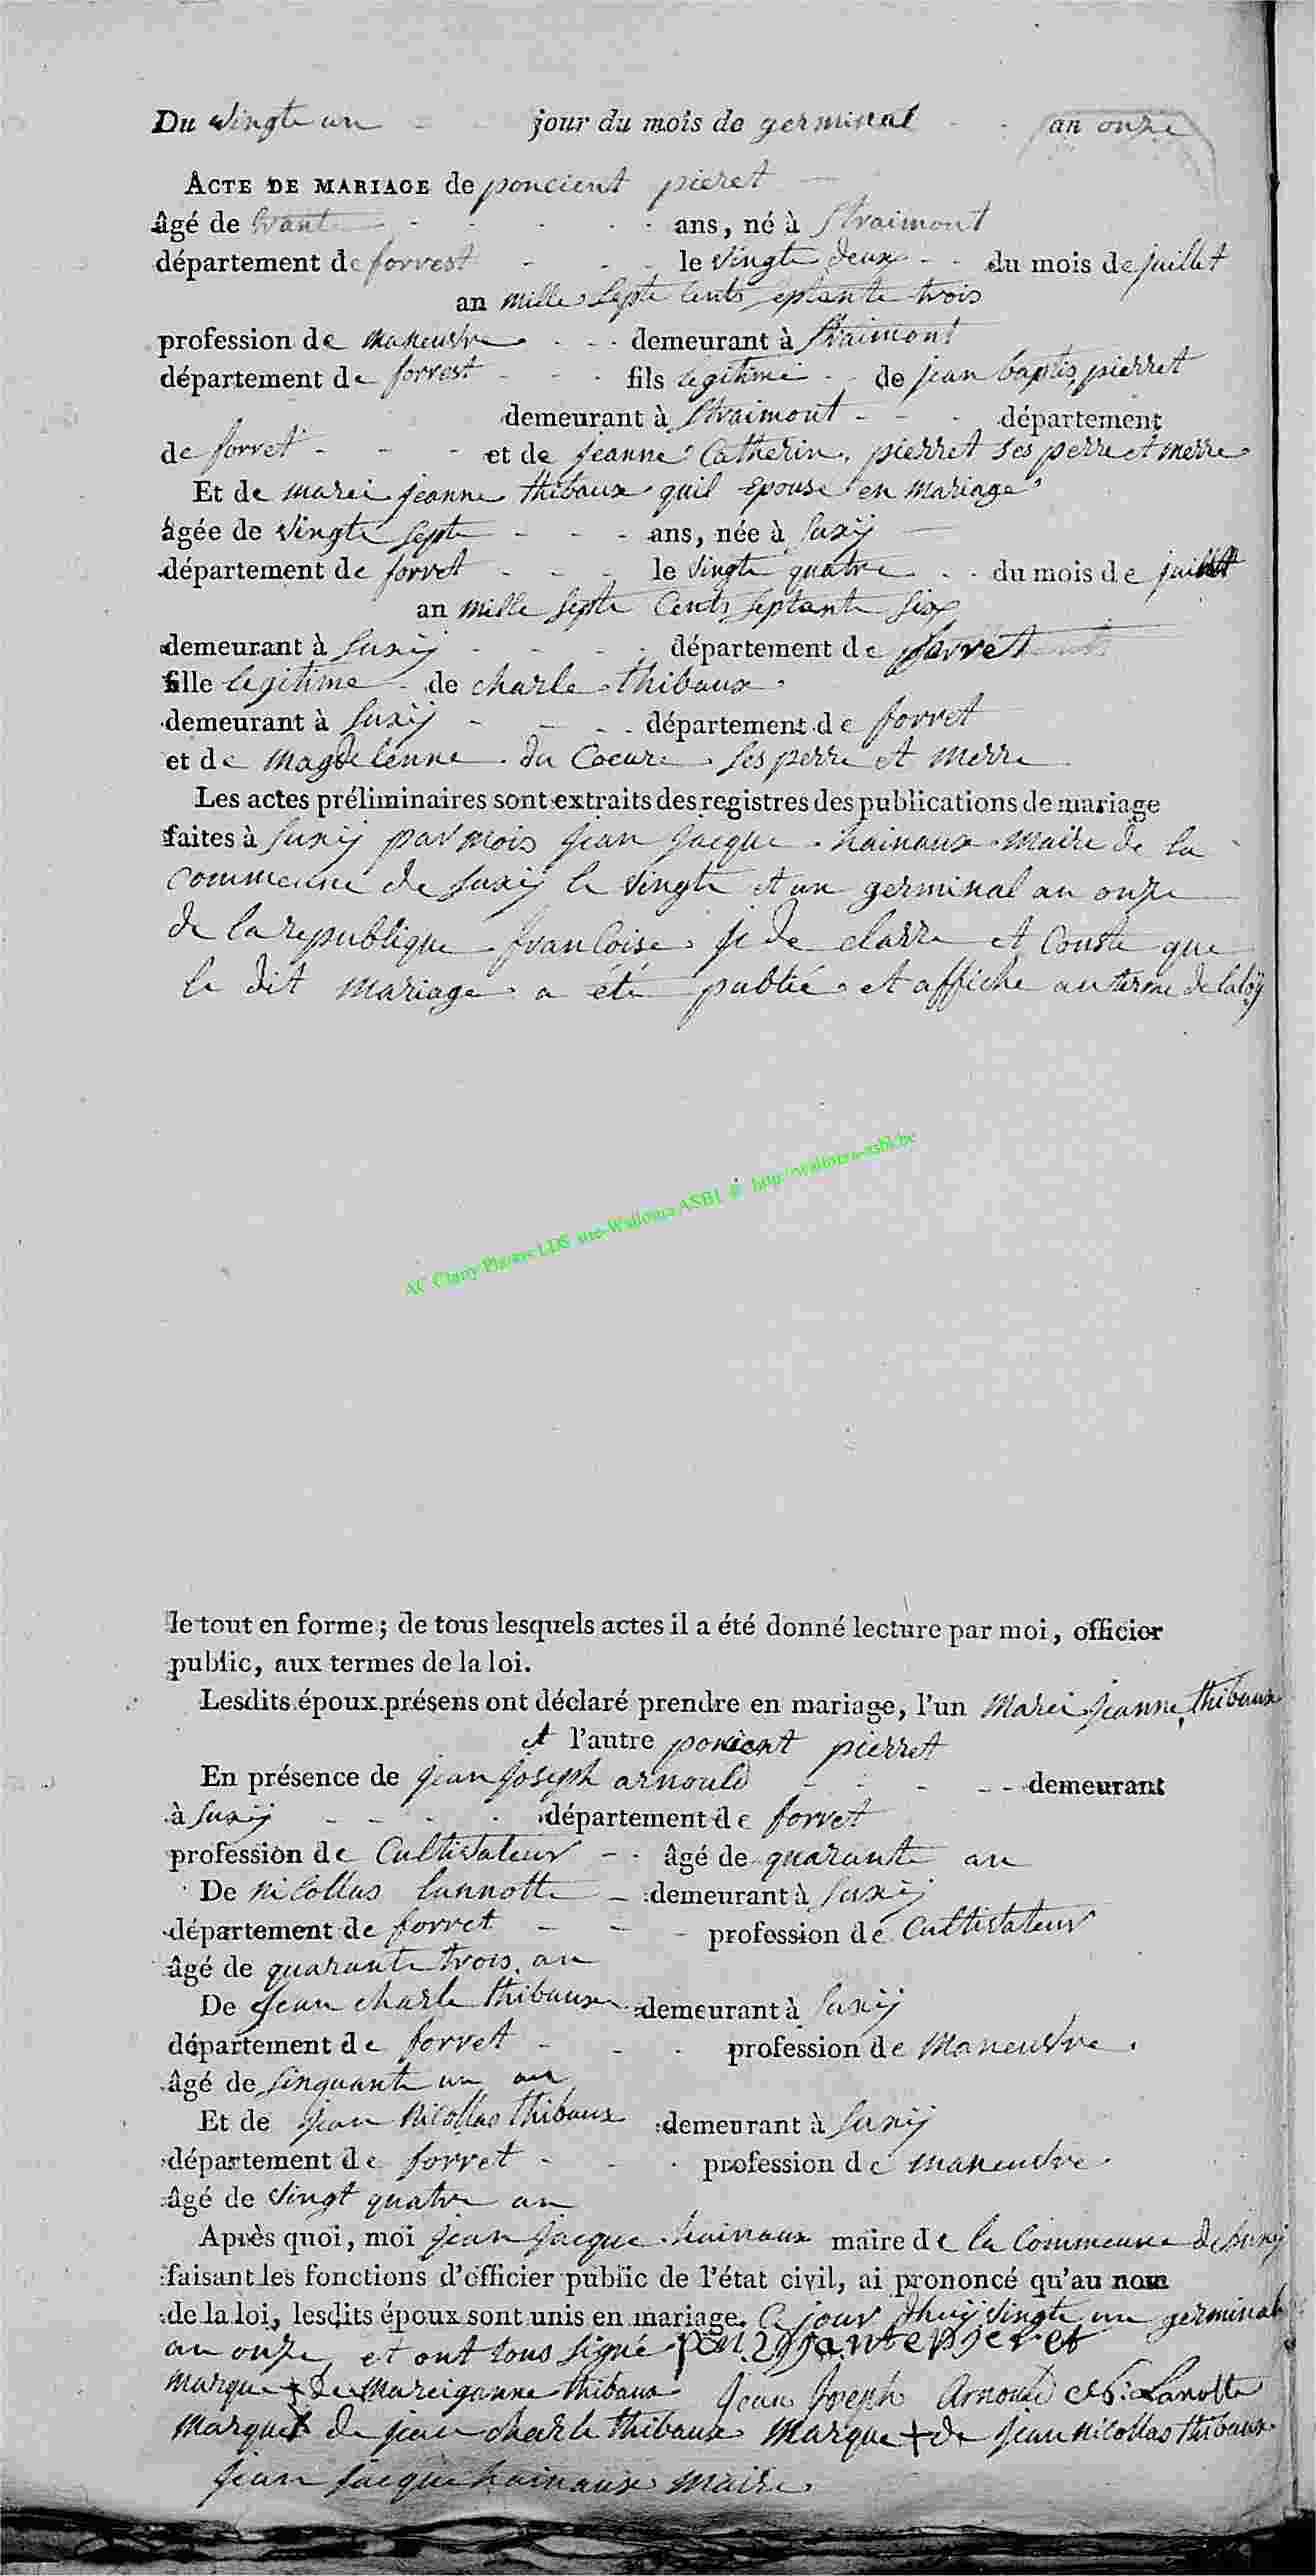 Du vingte un - - jour du mois de germinal - - an onze
ACTE DE MARIAGE de poncient pieret
âgé de trant - - - ans, né à Straimont
département de forrest - - - le vingte deux - - du mois de juillet
an mille septe cents septante trois
profession de maneuvre - - - demeurant à Straimont
département de forrest - - - fils legitime - de jean baptis pierret
demeurant à Straimont - - - département
de forret - - - et de jeanne Catherin pierret ses perre et merre
Et de marei jeanne thibaux quil epouse en mariage
âgée de vingte septe - - - ans, née à Suxÿ
département de forret - - - le vingte quatre - - du mois de juillet
an mille septe Cents septante six
demeurant à Suxÿ - - - - département de forret
fille legitime - de charle thibaux
demeurant à Suxÿ - - - département de forret
et de magdelenne du Coeure ses perre et merre
Les actes préliminaires sont extraits des registres des publications de mariage
faites à Suxÿ par mois jean jacque hainaux maire de la
commeune de Suxÿ le vingte et un germinal an onze
de la republique francoise je de clarre et Conste que
le dit mariage a été publié et affiché au terme de la loÿ
AC Ciney Pigeon LDS sur Wallonia ASBL @ http://wallonia-asbl.be
le tout en forme; de tous lesquels actes il a été donné lecture par moi, officier
public, aux termes de la loi.
Lesdits époux présens ont déclaré prendre en mariage, l'un Marei jeanne thibaux
et l'autre poncient pierret
En présence de jean joseph arnould - - - - demeurant
à Suxÿ - - - - département de forret
profession de Cultivateur - - âgé de quarante an
De nicollas lannotte - demeurant à Suxÿ
département de forret - - - profession de Cultivateur
âgé de quarante trois an
De jean charle thibaux demeurant à Suxÿ
département de forret - - - profession de maneuvre
âgé de sinquante un an
Et de jean nicollas thibaux demeurant à Suxÿ
département de forret - - - profession de maneuvre
âgé de vingt quatre an
Après quoi, moi jean jacque hainaux maire de la Commeune de Suxÿ
faisant les fonctions d'officier public de l'état civil, ai prononcé qu'au nom
de la loi, lesdits époux sont unis en mariage. Ce jour dhuÿ vingte un germinal
an onze et ont tous signé pieret
marque + de mareijeanne thibaux Jean Joseph Arnould Lanotte
marque + de jean charle thibaux marque + de jean nicollas thibaux
jean jacque hainaux maire